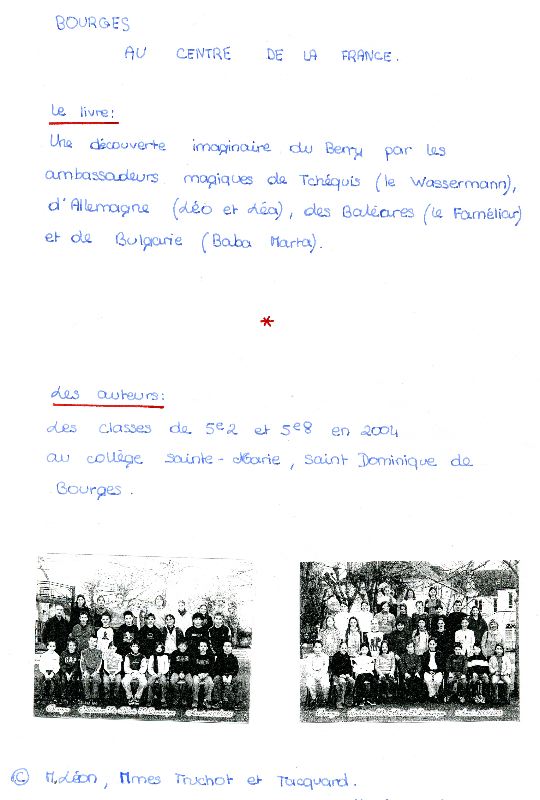 BOURGES
AU CENTRE DE LA FRANCE.
Le livre:
Une découverte imaginaire du Berry par les
ambassadeurs magiques de Tchéquis (le Wassermann),
d'Allemagne (Léo et Léa), des Baléares (le Faméliar)
et de Bulgarie (Baba Marta).
*
Les auteurs:
Les classes de 5e2 et 5e8 en 2004
au collège Sainte-Marie, Saint Dominique de
Bourges.
© M.Léon, Mmes Truchot et Tacquard.